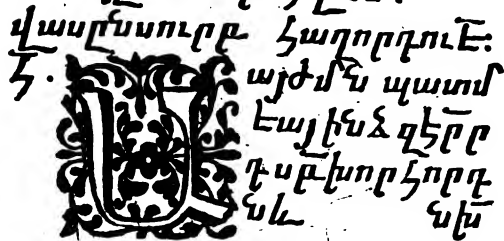 վասընսուրբ հաղորդուէ:
Հ. Ա այժմն պատմ
եայ ինձ զէրը
դսբ խորհորդ
նև նխ